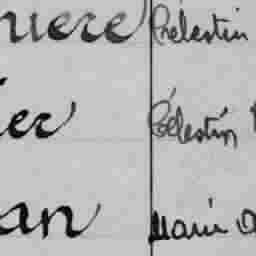 uere Célestin
er Célestin
an Marie